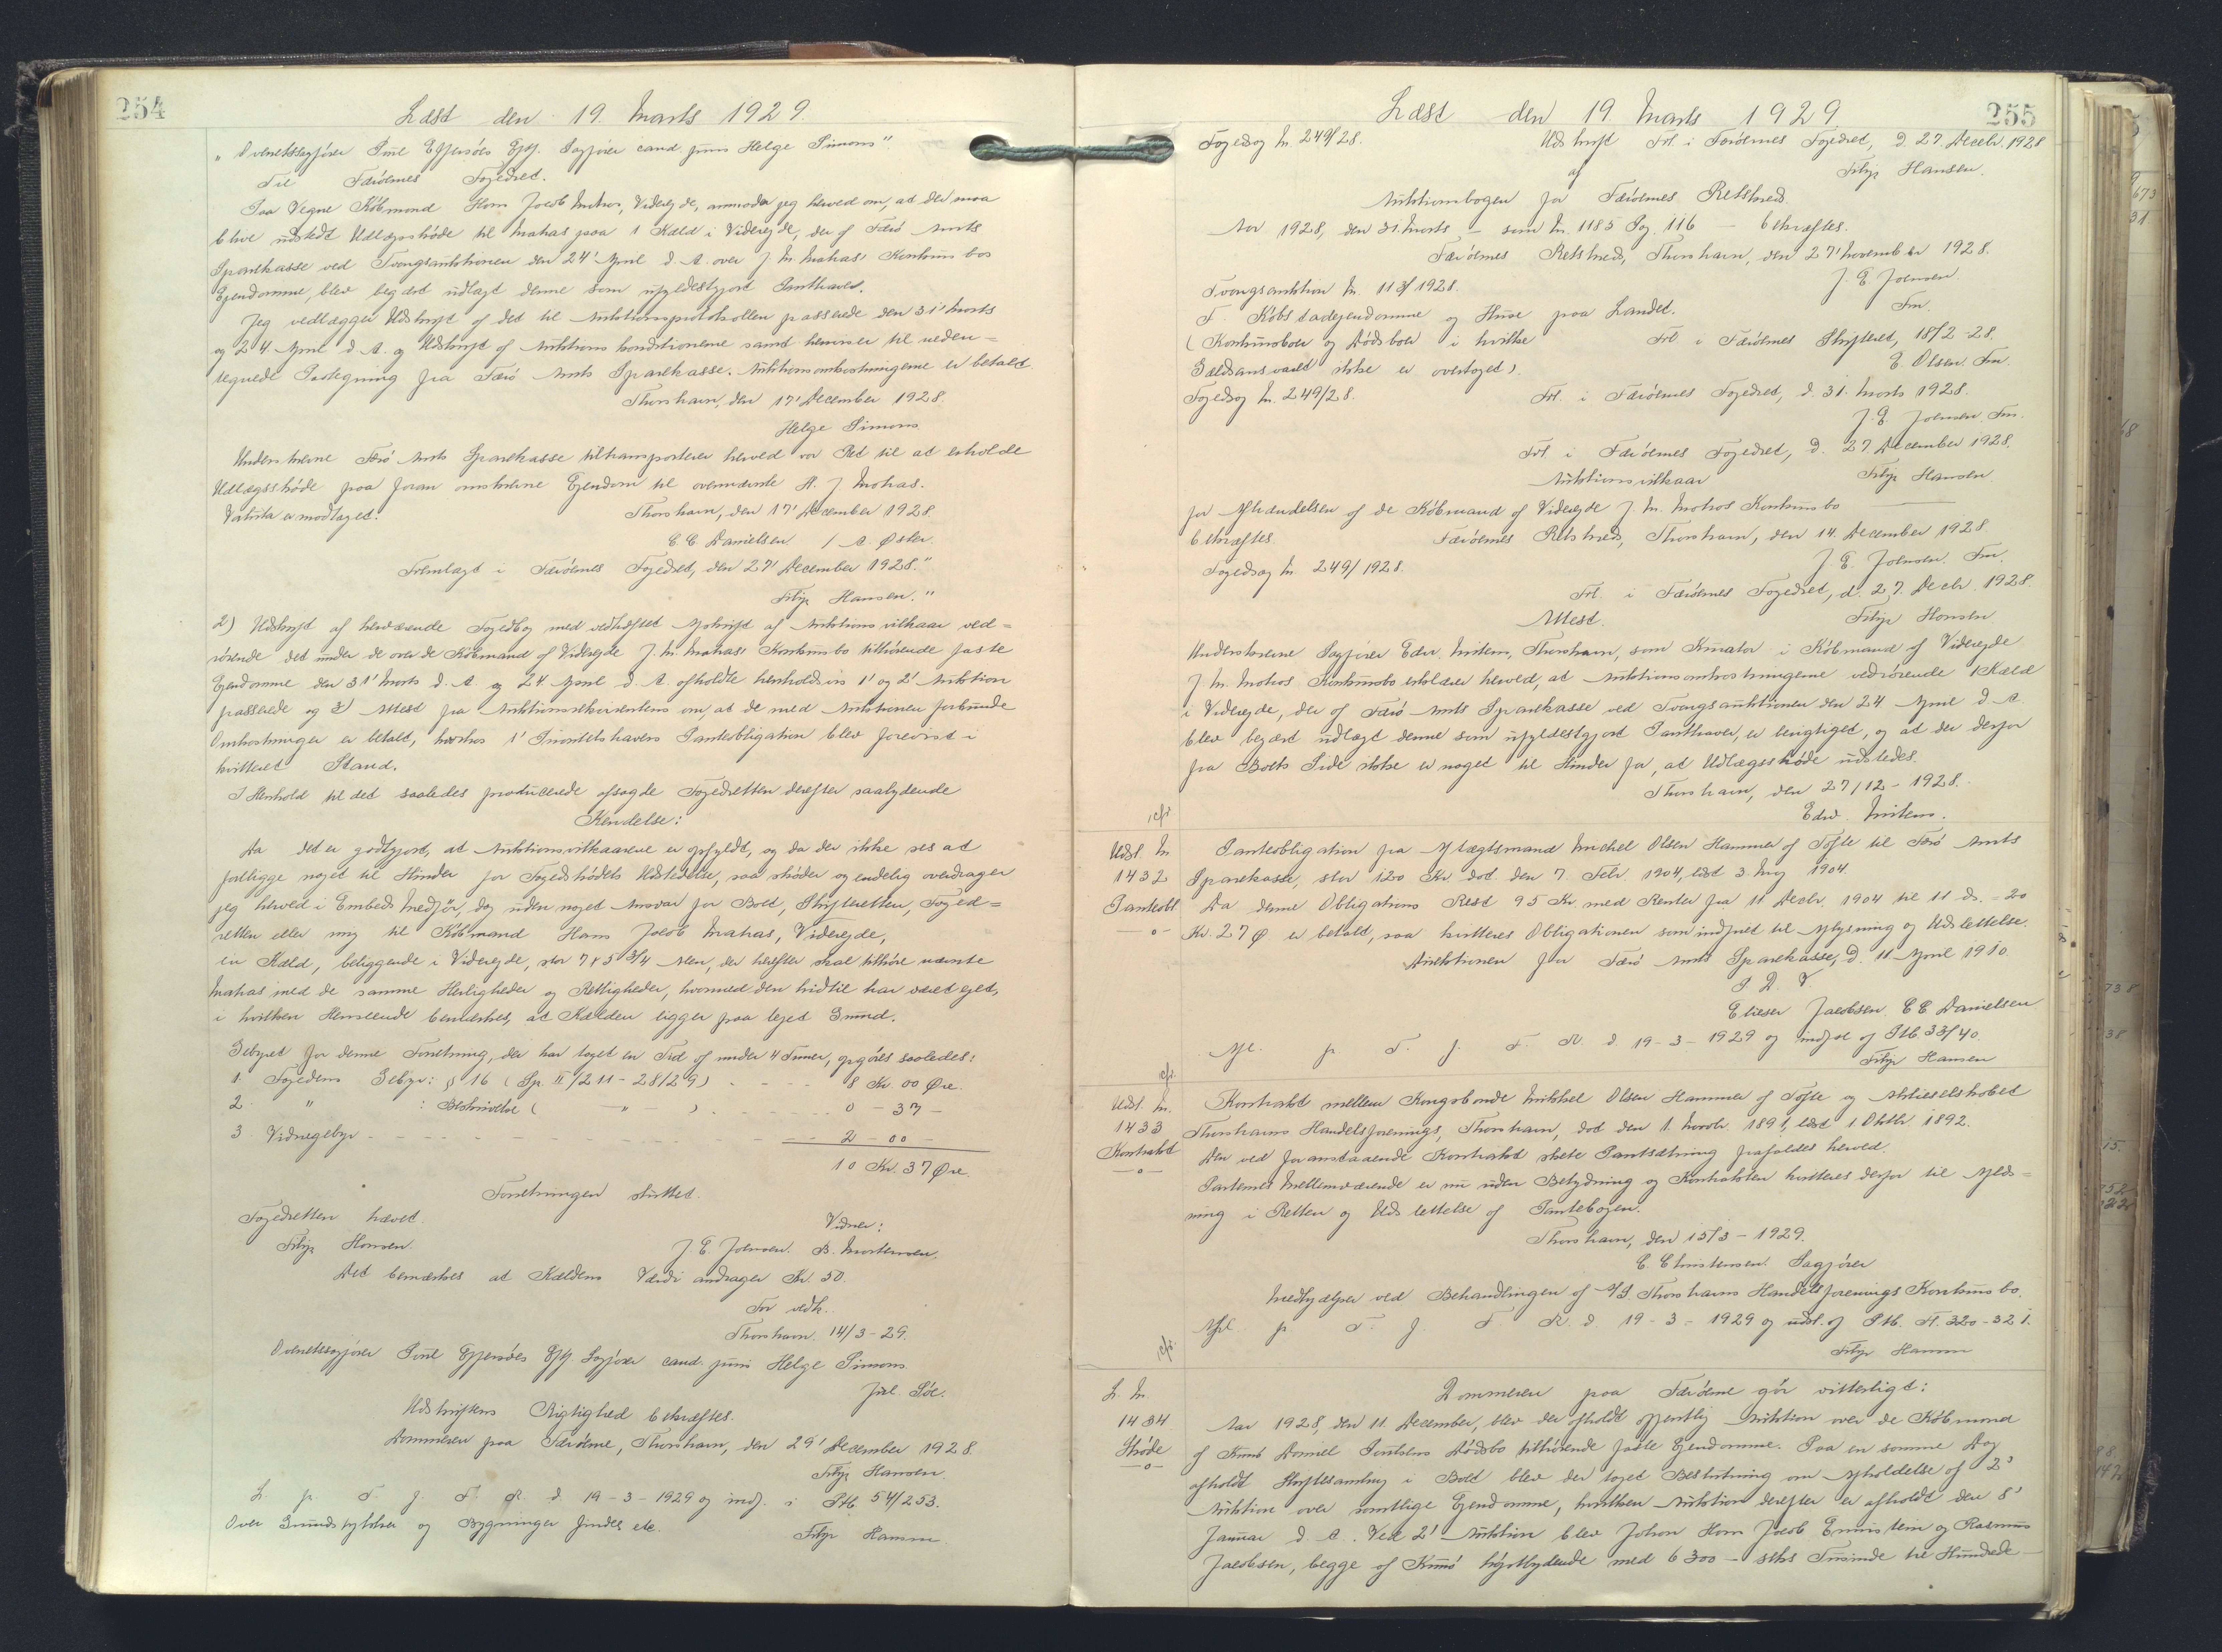 254
Læst den 19. Marts 1929.
" Overretssagfører Poul Effersöes Eftf. Sagfører cand. juris Helge Simons"
Til Færöernes Fogedret.
Paa Vegne Köbmand Hans Jacob Mahas, Viderejde, anmoder jeg herved om, at der maa
blive udstedt Udlægsskøde til Mahas paa 1 Kæld i Viderejde, der af Færö Amts
Sparekasse ved Tvangsauktionen den 24' April d. A. over J. M. Mahas' Konkursbos
Ejendomme, blev begært udlagt denne som ufyldestgjort Panthaver.
Jeg vedlægger Udskrift af det til Auktionsprotokollen passerede den 31' Marts
og 24 April d. A. og Udskrift af Auktionskonditionerne samt henviser til neden=
tegnede Paategning fra Færö Amts Sparekasse. Auktionsomkostningerne er betalt.
Thorshavn, den 17' December 1928.
Helge Simons
Underskrevne Færö Amts Sparekasse tiltransporterer herved vor Ret til at erholde
Udlægsskøde paa foran omskrevne Ejendom til ovennævnte H. J. Mahas.
Valuta er modtaget.
Thorshavn, den 17' December 1928
C. C. Danielsen / A. Øster.
Fremlagt i Færöernes Fogedret, den 27' December 1928."
Filip Hansen."
2) Udskrift af herværende Fogedbog med vedhæftet Afskrift af Auktionsvilkaar ved=
rörende det under de over de Köbmand af Viderejde J. M. Mahas' Konkursbo tilhörende faste
Ejendomme den 31' Marts d. A. og 24. April d. A. afholdte henholdsvis 1' og 2' Auktion
passerede og 3) Attest fra Auktionsrekvirentens om, at de med Auktionen forbundne
Omkostninger er betalt, hvorhos 1' Prioritetshavers Panteobligation blev forevist i
kvitteret Stand.
I Henhold til det saaledes producerede afsagde Fogedretten derefter saalydende
Kendelse:
Da det er godtgjort, at Auktionsvilkaarene er opfyldt, og da der ikke ses at
foreligge noget til Hinder for Fogedskødets Udstedelse, saa skøder og endelig overdrager
jeg herved i Embeds Medför, dog uden noget Ansvar for Boet, Skifteretten, Foged=
retten eller mig til Köbmand Hans Jacob Mahas, Viderejde,
en Kæld, beliggende i Viderejde, stor 7 x 5 3/4 Alen, der herefter skal tilhöre nævnte
Mahas med de samme Herligheder og Rettigheder, hvormed den hidtil har været ejet,
i hvilken Henseende bemærkes, at Kælden ligger paa lejet Grund.
Gebyret for denne Forretning, der har taget en Tid af under 4 Timer, opgöres saaledes:
1. Fogedens Gebyr: § 16 (Sp. II/211 - 28/29) - - - - 8 Kr. 00 Øre.
2. " : Beskrivelse ( - " - ) - - - - 0 - 37 -
3. Vidnegebyr - - - - - - - 2 - 00 -
10 Kr. 37 Øre.
Forretningen sluttet.
Fogedretten hævet.
Filip Hansen.
Vidner:
J. E. Joensen. B. Mortensen.
Det bemærkes at Kældens Værdi andrager Kr. 50.
For vedk.
Thorshavn. 14/3-29.
Overretssagförer Poul Effersöes Eftf. Sagförer cand. juris Helge Simons
Udskriftens Rigtighed bekræftes.
Dommeren paa Færöerne, Thorshavn, den 29' December 1928
Filip Hansen
L. p. T. f. F. R. d. 19-3-1929 og indf. i Ptb 54/253.
Over Grundstykker og Bygninger findes etc.
Filip Hansen
255
Læst den 19. Marts 1929.
Fogedsag Nr. 249/28.
Udskrift Frl. i Færöernes Fogedret, d. 27. Decebr. 1928
af
Filip Hansen.
Auktionsbogen for Færöernes Retskreds
Aar 1928, den 31. Marts - som Nr. 1185 Pag. 116 - bekræftes.
Færöernes Retskreds, Thorshavn, den 27' November 1928.
J. E. Joensen.
Fm.
Tvangsauktion Nr. 113/1928.
F. Köbstadejendomme og Huse paa Landet.
(Konkursboer og Dödsboer i hvilke
Gældsansvaret ikke er overtaget).
Frl. i Færöernes Skifteret, 18/2-28.
E. Olsen Fm.
Fogedsag Nr. 249/28.
Frl. i Færöernes Fogedret, d. 31. Marts 1928.
J. E. Joensen. Fm.
Frl. i Færöernes Fogedret, d. 27 December 1928.
Auktionsvilkaar
Filip Hansen
for Afhændelsen af de Köbmand af Viderejde J. M. Mahas Konkursbo
bekræftes.
Færöernes Retskreds, Thorshavn, den 14. December 1928
J. E. Joensen. Fm.
Fogedsag Nr. 249/1928.
Frl. i Færöernes Fogedret, d. 27. Decbr. 1928.
Attest.
Filip Hansen
Underskrevne Sagförer Edw. Mitens, Thorshavn, som Kurator i Köbmand af Viderejde
J. M. Mahas Konkursbo erklærer herved, at Auktionsomkostningerne vedrörende 1 Kæld
i Viderejde, der af Færö Amts Sparekasse ved Tvangsauktionen den 24 April d. A.
blev begært udlagt denne som ufyldestgjort Panthaver, er berigtiget, og at der derfor
fra Boets Side ikke er noget til Hinder for, at Udlægsskøde udstedes.
Thorshavn, den 27/12-1928.
Edw. Mitens.
Udsl. Nr
1432
Panteobl
-o-
Panteobligation fra Aftægtsmand Michel Olsen Hammer af Tofte til Færö Amts
Sparekasse, stor 120 Kr. dat. den 7. Febr. 1904, læst 3. Maj 1904.
Da denne Obligations Rest 95 Kr. med Renter fra 11 Decbr. 1904 til 11 ds. = 20
Kr. 27 Ø er betalt, saa kvitteres Obligationen som indfriet til Aflysning og Udslettelse.
Direktionen for Færö Amts Sparekasse, D. 11 April 1910.
P. D. V.
Elieser Jacobsen C C Danielsen
Afl. p. T. f. F. R. d. 19-3-1929 og indf. af Ptb. 33/40.
Filip Hansen
Udsl. Nr.
1433
Kontrakt
-o-
Kontrakt mellem Kongsbonde Mikkel Olsen Hammer af Tofte og Aktieselskabet
Thorshavns Handelsforenings, Thorshavn, dat. den 1. Novbr. 1891, læst 1 Oktbr. 1892.
Den ved foranstaaende Kontrakt skete Pantsætning frafaldes herved.
Parternes Mellemværende er nu uden Betydning og Kontrakten kvitteres derfor til Aflæs=
ning i Retten og Udslettelse af Pantebogen.
Thorshavn, den 15/3-1929.
C. Christensen. Sagförer
Medhjælper ved Behandlingen af A/S Thorshavns Handelsforenings Konkursbo.
Afl. p. T. f. F. R. d. 19-3-1929 og udsl. af Ptb. H. 320-321.
Filip Hansen
L. Nr.
1434
Skøde
-o-
Dommeren paa Færöerne gör vitterligt:
Aar 1928, den 11. December, blev der afholdt offentlig Auktion over de Köbmand
af Kunö Daniel Poulsens Dödsbo tilhörende faste Ejendomme. Paa en samme Dag
afholdt Skiftesamling i Boet blev der taget Beslutning om Afholdelse af 2'
Auktion over samtlige Ejendomme, hvilken Auktion derefter er afholdt den 8'
Januar d. A. Ved 2' Auktion blev Johan Hans Jacob og Rasmus
Jacobsen, begge af Kunö höjstbydende med 6300 - seks Tusinde tre Hundrede -